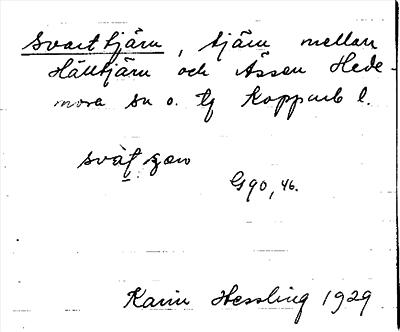 Svarttjärn, tjärn mellan
Hälltjärn och Åssen Hede-
mora sn o. tg Kopparb l.
svàṭ ɕæn
G90, 46.
Karin Hessling 1929